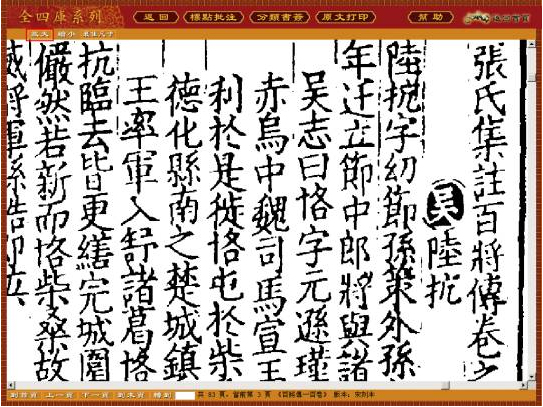 全四庫系列 返回 標點批注 分類書簽 原文打印 幫助 返回首頁
放大 縮小 最佳尺寸
張氏集註百將傳卷之
吴 陸抗
陸抗字幼節孫策外孫
年迁立節中郎將與諸
吴志曰恪字元遜瑾
赤烏中魏司馬宣王
利於是徙恪屯於柴
德化縣南之楚城鎮
王率軍入舒諸葛恪
抗臨去皆更繕完城圍
儼然若新而恪柴桑故
威將軍孫皓即位
到首頁 上一頁 下一頁 到末頁 轉到 共 83 頁，當前第 3 頁 《百將傳一百卷》 版本：宋刻本